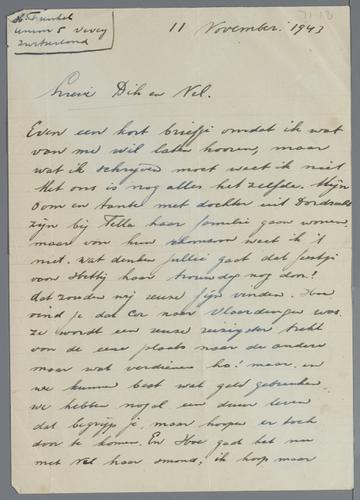 Union 5 Vevey
Zwitserland
71 13
11 November 1943
Lieve Dik en Nel.
Even een kort briefje omdat ik wat
van me wil laten hooren, maar
wat ik schrijven moet weet ik niet
Met ons is nog alles het zelfde. Mijn
Oom en tante met dochter uit Dordrecht
zijn bij Tella haar familie gaan wonen,
maar van hun weet ik 't
niet. wat denken jullie gaat dat feestje
van Hetty haar trouwdag nog door?
dat zouden wij reuze fijn vinden. Hoe
vind je dat Cor naar Vlaardingen was.
Ze wordt een reuze reizigster trekt
van de eene plaats naar de andere
maar wat verdienen ho! maar. en
we kunnen best wat geld gebruiken.
we hebben nogal een duur leven
dat begrijp je, maar hopen er toch
door te komen. En Hoe gaat het nu
met Nel haar mond, ik hoop maar